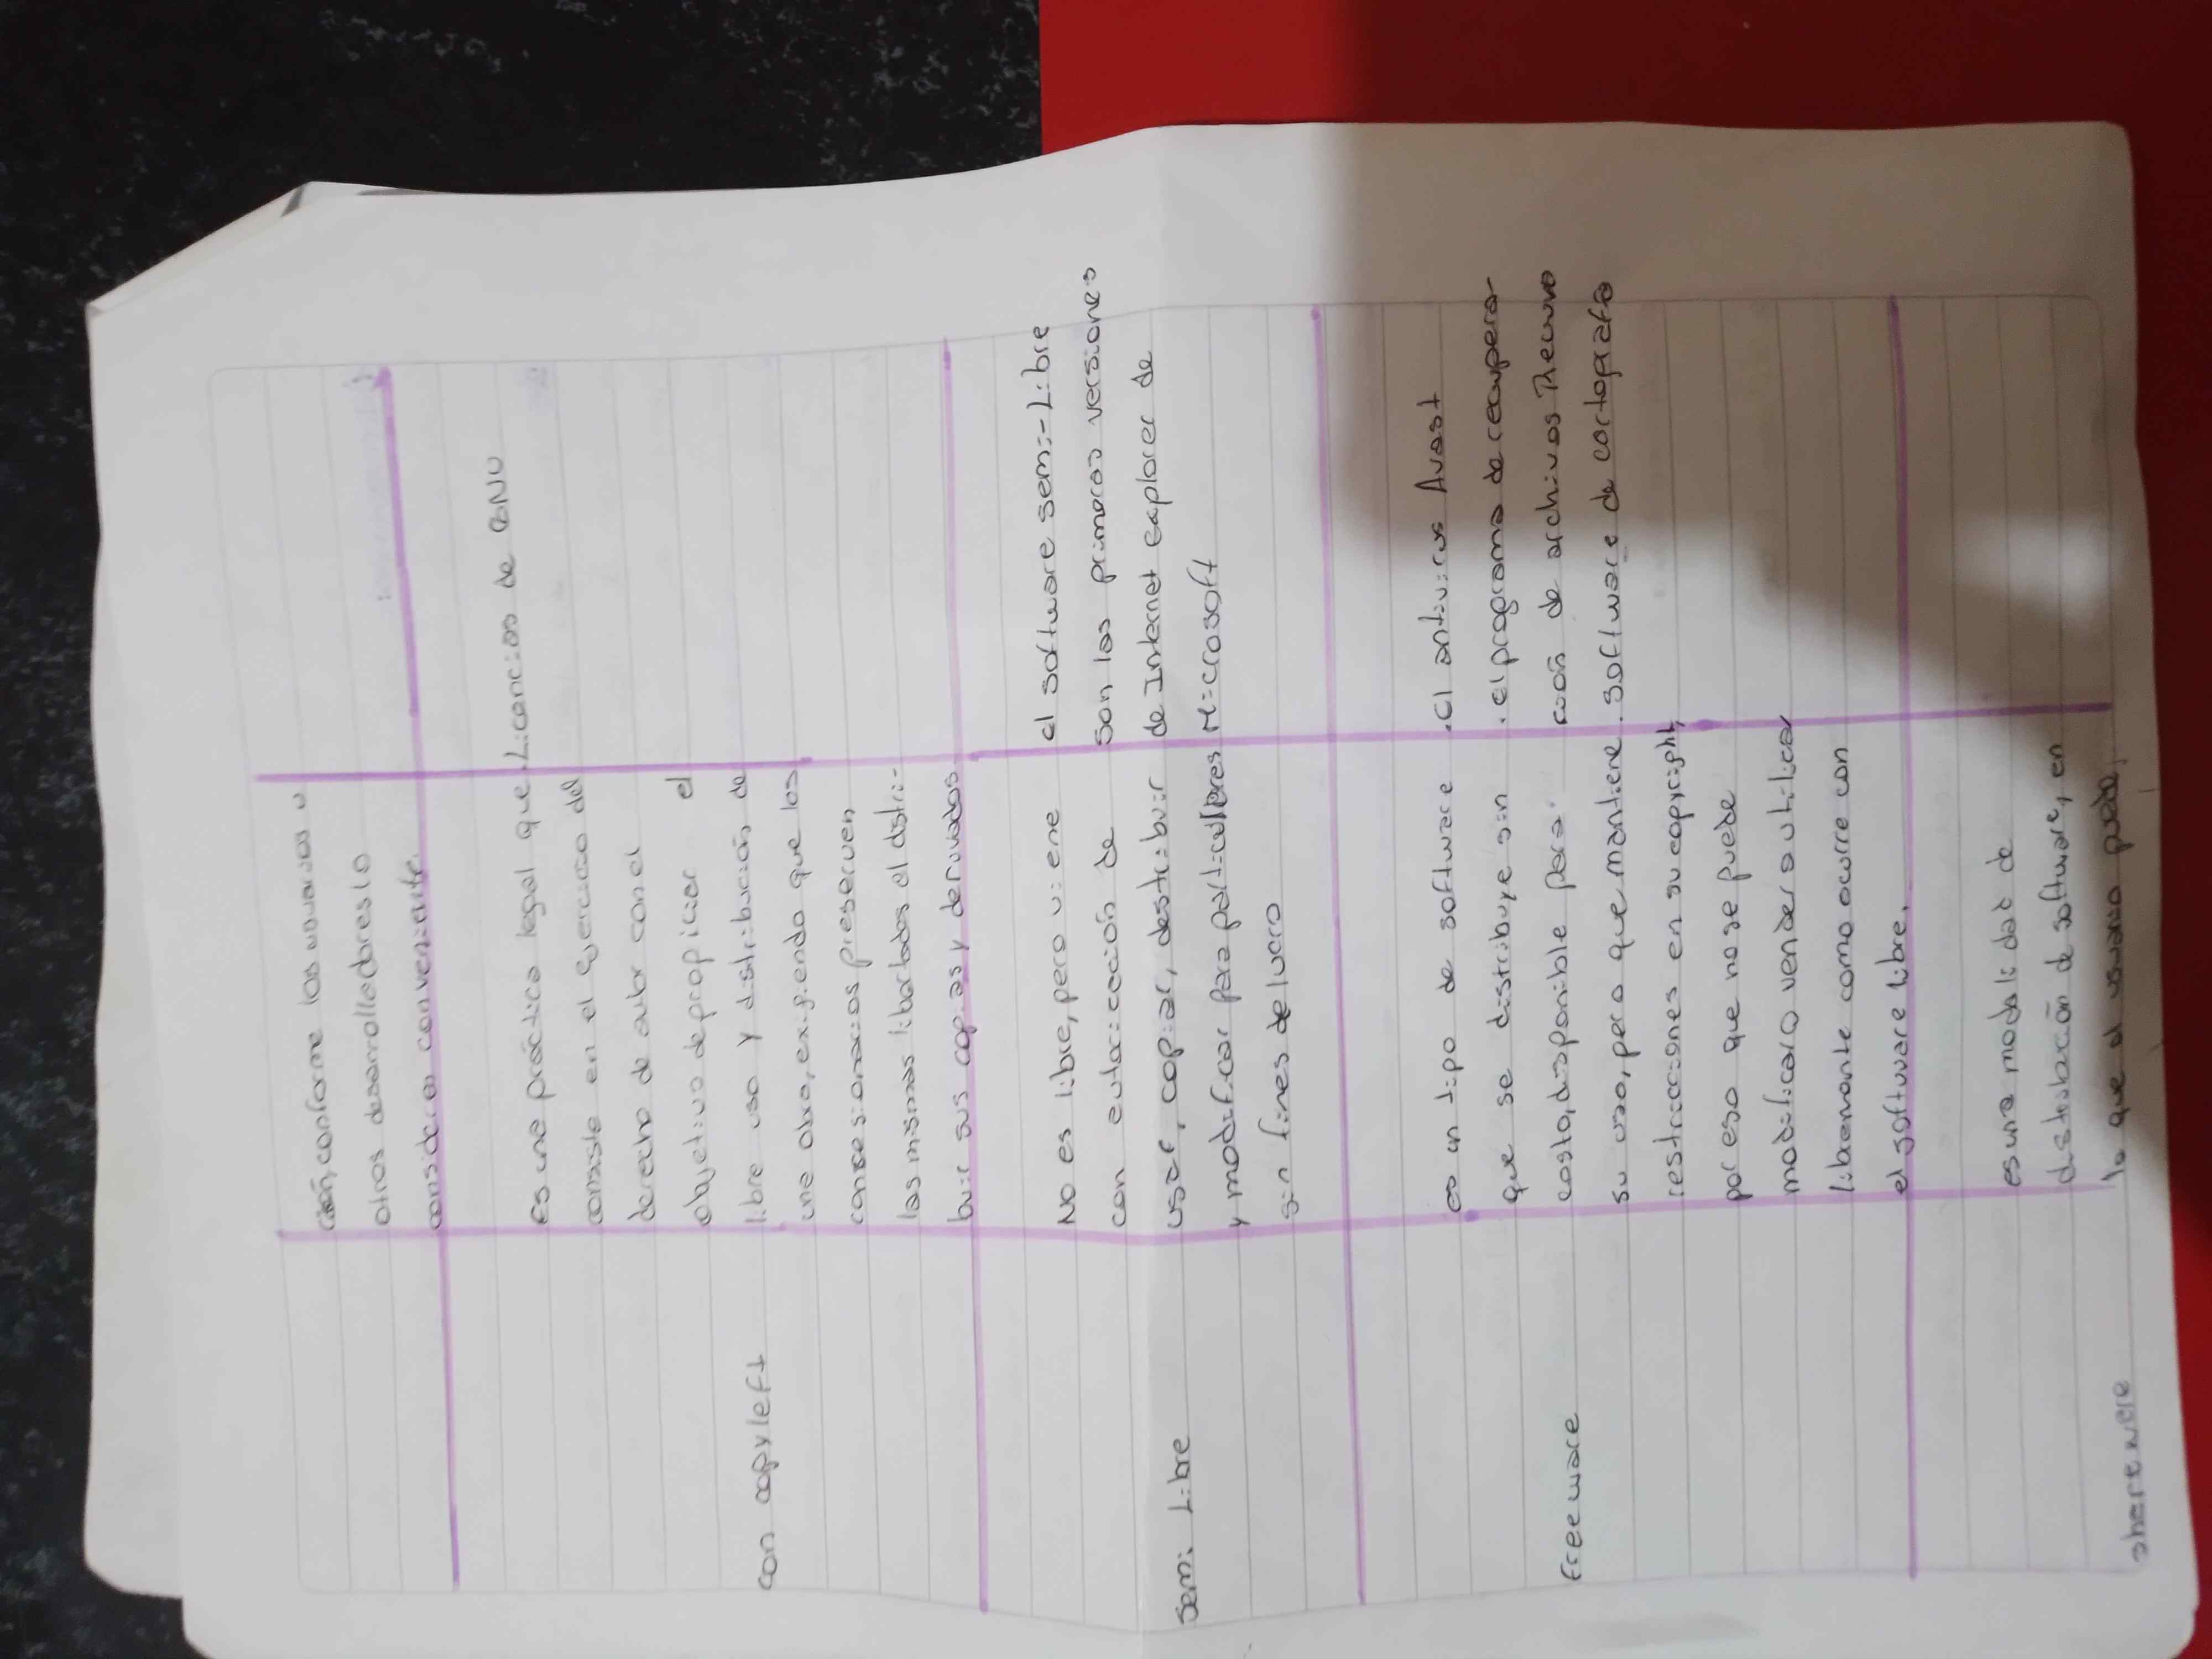 ción, conforme los usuarios u
otros desarrolladores lo
consideren conveniente.
con copyleft
es una práctica legal que
consiste en el ejercicio del
derecho de autor con el
objetivo de propiciar el
libre uso y distribución de
una obra, exigiendo que los
concesionarios preserven
las mismas libertades al distri-
buir sus copias y derivados
. Licencias de GNU
Semi Libre
No es libre, pero viene
con autorización de
usar, copiar, distribuir
y modificar para particulares
sin fines de lucro
el software semi-Libre
son las primeras versiones
de Internet explorer de
Microsoft
freeware
es un tipo de software
que se distribuye sin
costo, disponible para
su uso, pero que mantiene
restricciones en su copyright,
por eso que no se puede
modificar o vender o utilizar
libremente como ocurre con
el software libre.
. el antivirus Avast
. el programa de recupera-
ción de archivos Recuva
. software de cartografía
sherewere
es una modalidad de
distribución de software, en
la que el usuario puede